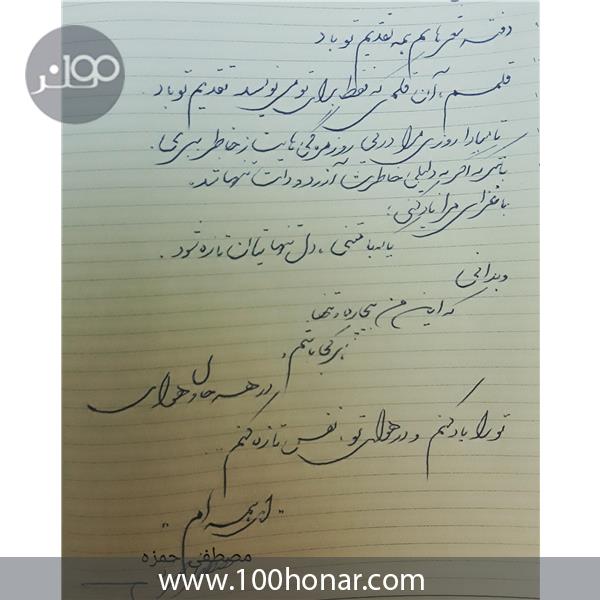 دفتر شعرهایم همه تقدیم تو باد
قلمم، آن قلمی که فقط برای تو می‌نویسد تقدیم تو باد.
تا مبادا روزی مرا در پی روزمرگی هایت از خاطر ببری.
یا که اگر به دلیلی خاطرت آزرده و دلت تنها شد.
با غزلی مرا یاد کنی؛
یا به بیتی، دل تنهایمان تازه شود.
و بدانی
که این من بیچاره و تنها
هر کجا باشم،
در همه حال و هوای
تو را یاد کنم و در هوای تو، نفس تازه کنم...
"ای همه ام"
مصطفی حمزه
100هنر
www.100honar.com